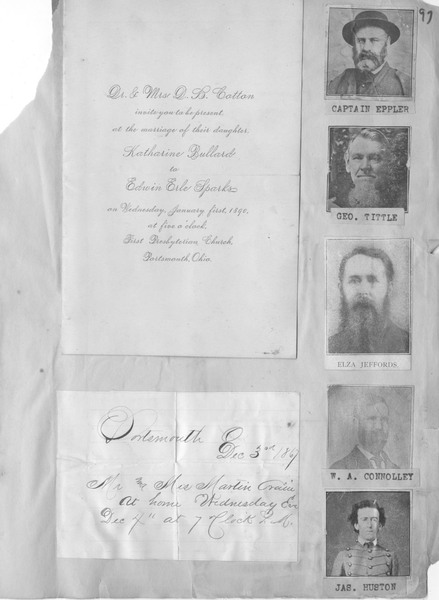 97
Dr. & Mrs. D. B. Cotton
invite you to be present
at the marriage of their daughter
Katharine Bullard
to
Edwin Erle Sparks
on Wednesday, January first, 1890,
at five o'clock,
First Presbyterian Church
Portsmouth, Ohio.
Portsmouth
Dec 3rd
Mr & Mrs Martin
At home Wednesday Ev
Dec 4th at 7 Clock P. M.
CAPTAIN EPPLER
GEO. TITTLE
ELZA JEFFORDS.
W. A. CONNOLLEY
JAS. HUSTON